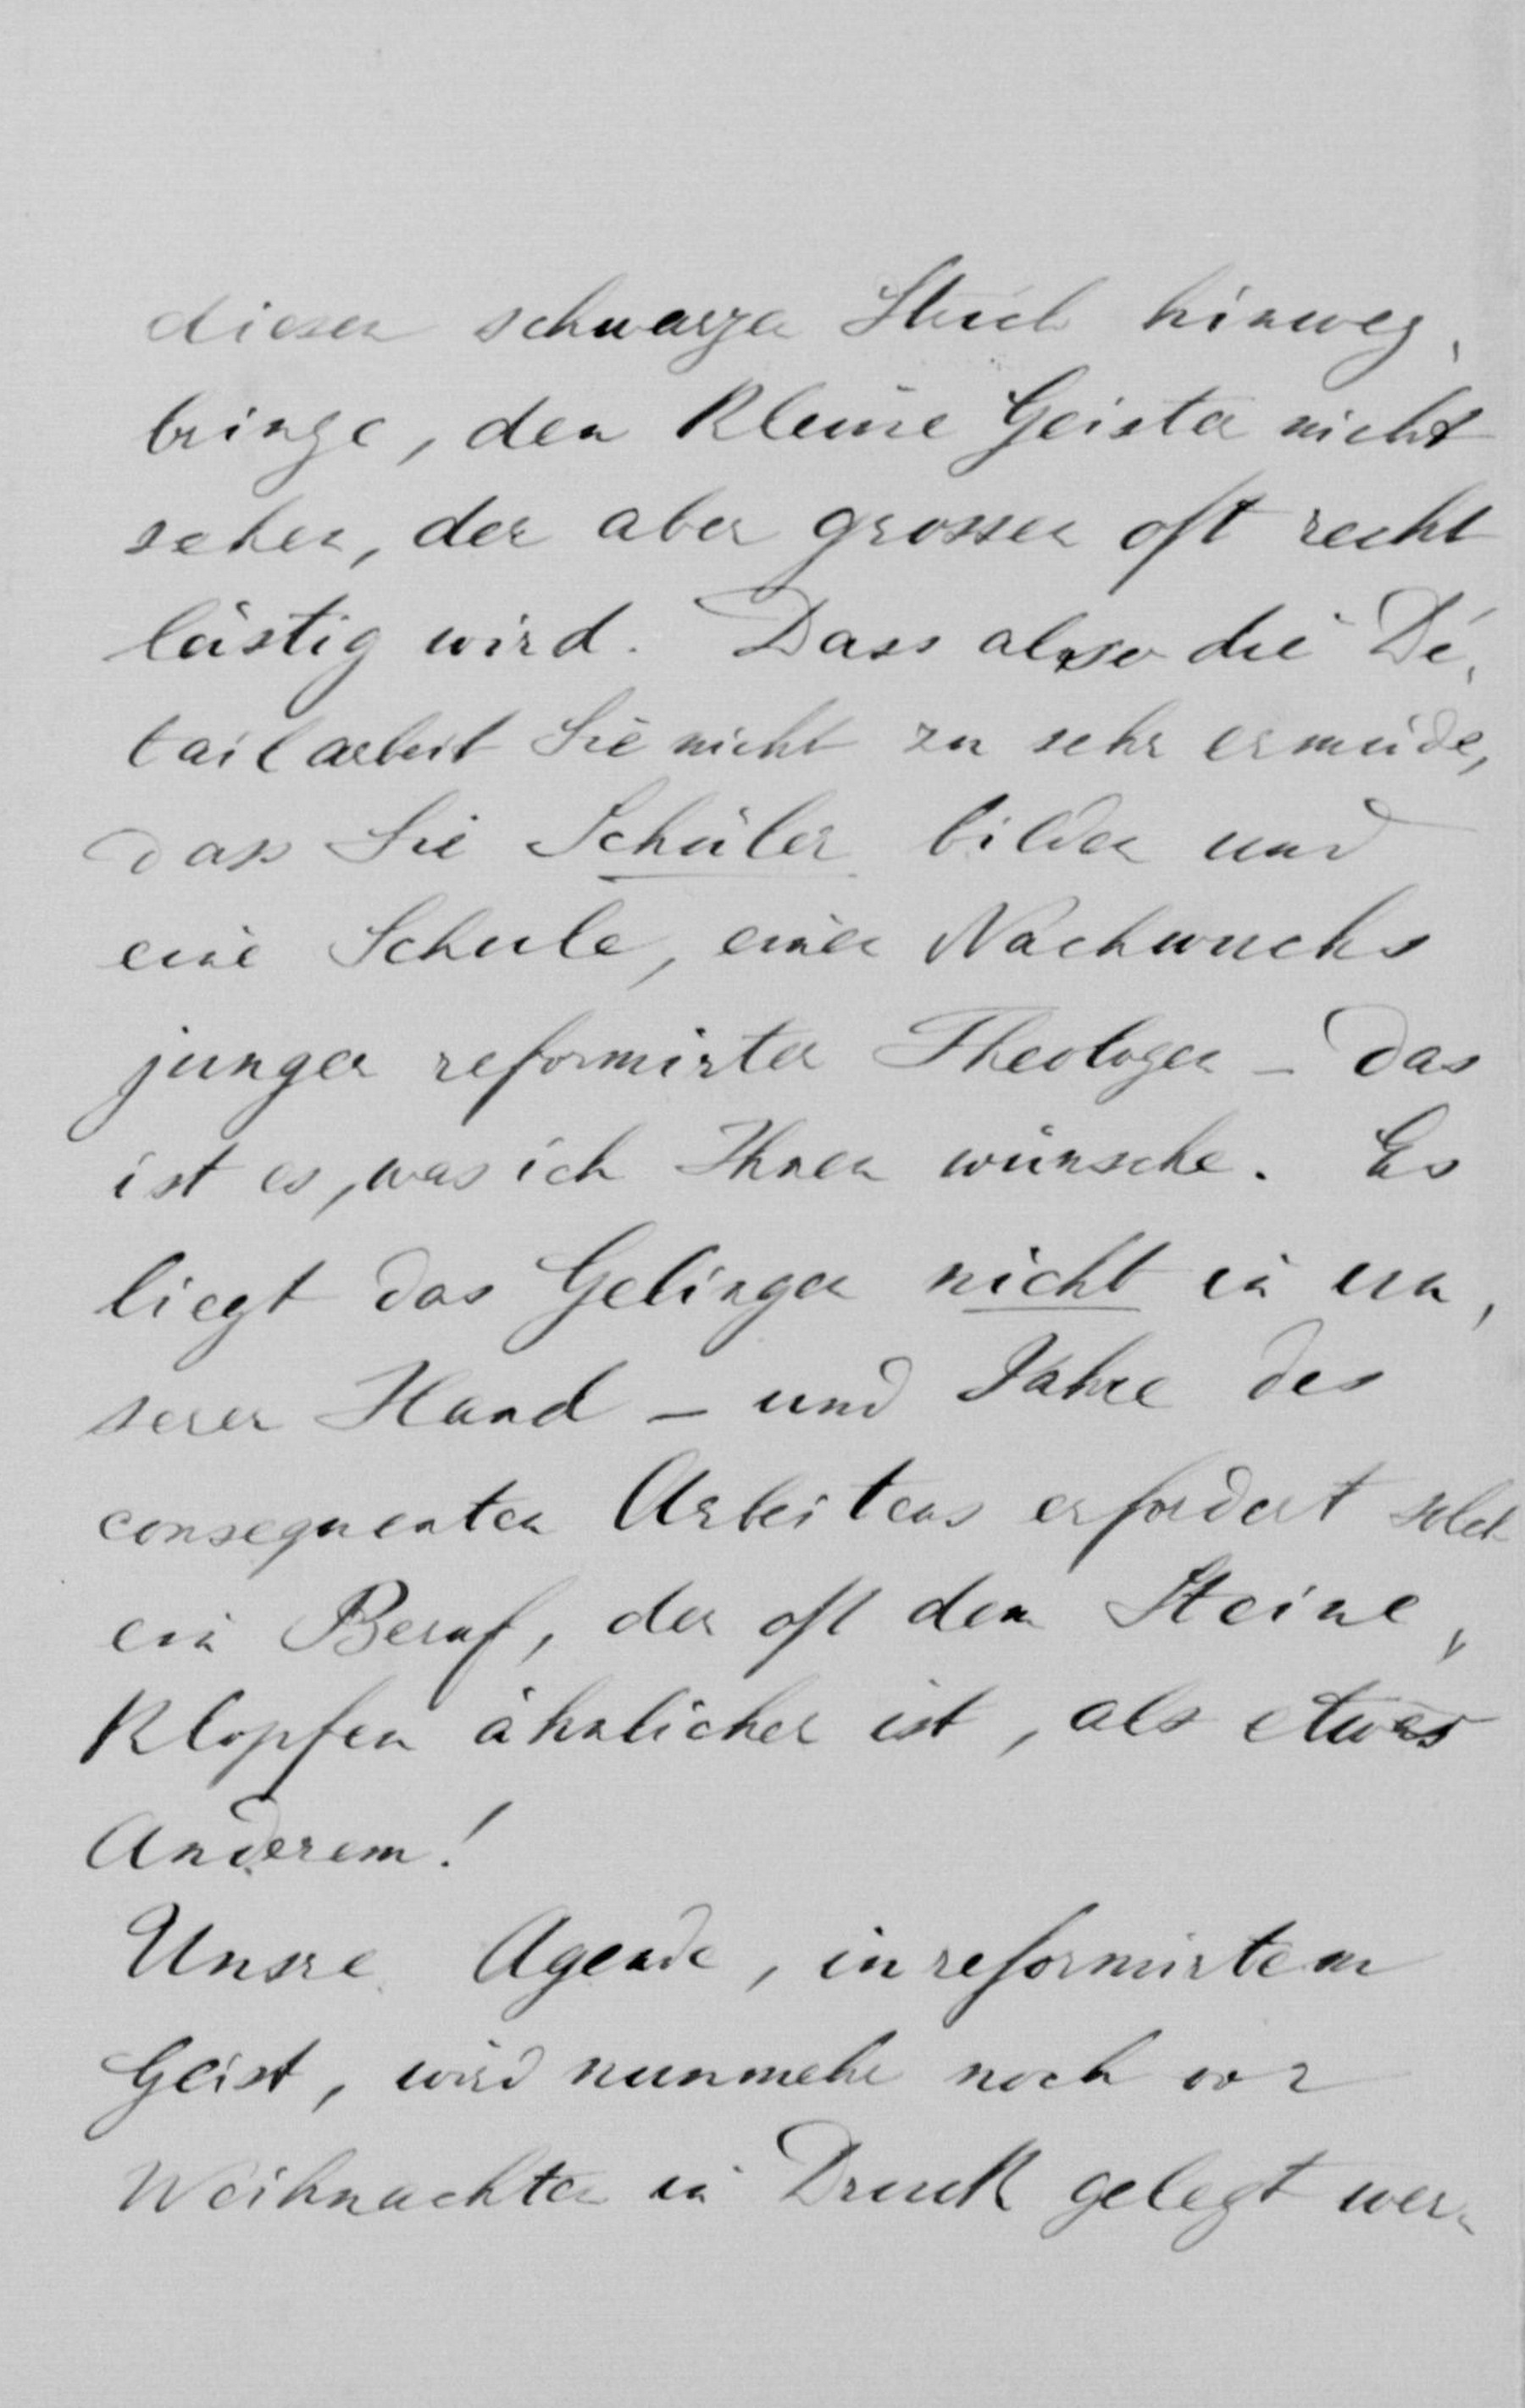 diesen schwarzen Strich hinweg,
bringe, den kleine Geister nicht
sehen, der aber grossen oft recht
lästig wird. Dass also die Dé,
tailarbeit Sie nicht zu sehr ermüde,
dass Sie Schüler bilden und
eine Schule, einen Nachwuchs
junger reformirter Theologen – das
ist es, was ich Ihnen wünsche. Es
liegt das Gelingen nicht in un,
serer Hand – und Jahre des
consequenten Arbeitens erfordert solch
ein Beruf, der oft dem Steine,
klopfen ähnlicher ist, als etwas
Anderem!
Unsre Agende, in reformirtem
Geist, wird nunmehr noch vor
Weihnachten in Druck gelegt wer-